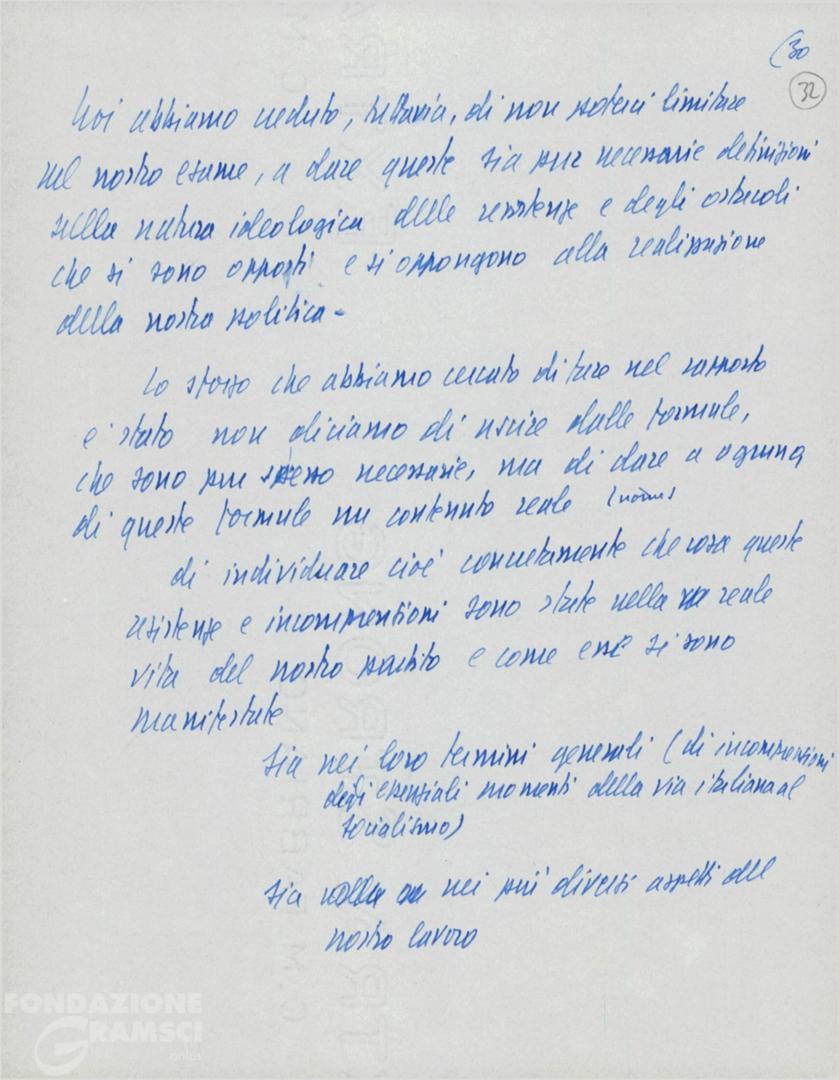 (30
32
Noi abbiamo veduto, tuttavia, di non poterci limitare
nel nostro esame, a dare queste sia pur necessarie definizioni
sulla natura ideologica delle resistenze e degli ostacoli
che si sono opposti e si oppongono alla realizzazione
della nostra politica -
Lo sforzo che abbiamo cercato di fare nel rapporto
e' stato non diciamo di uscire dalle formule,
che sono pur spesso necessarie, ma di dare a ognuna
di queste formule un contenuto reale
di individuare cioè concretamente che cosa queste
resistenze e incomprensioni sono state nella reale
vita del nostro partito e come esse si sono
manifestate
sia nei loro termini generali (di incomprensioni
degli essenziali momenti della via italiana al
socialismo)
sia nei più diversi aspetti del
nostro lavoro
FONDAZIONE
GRAMSCI
onlus